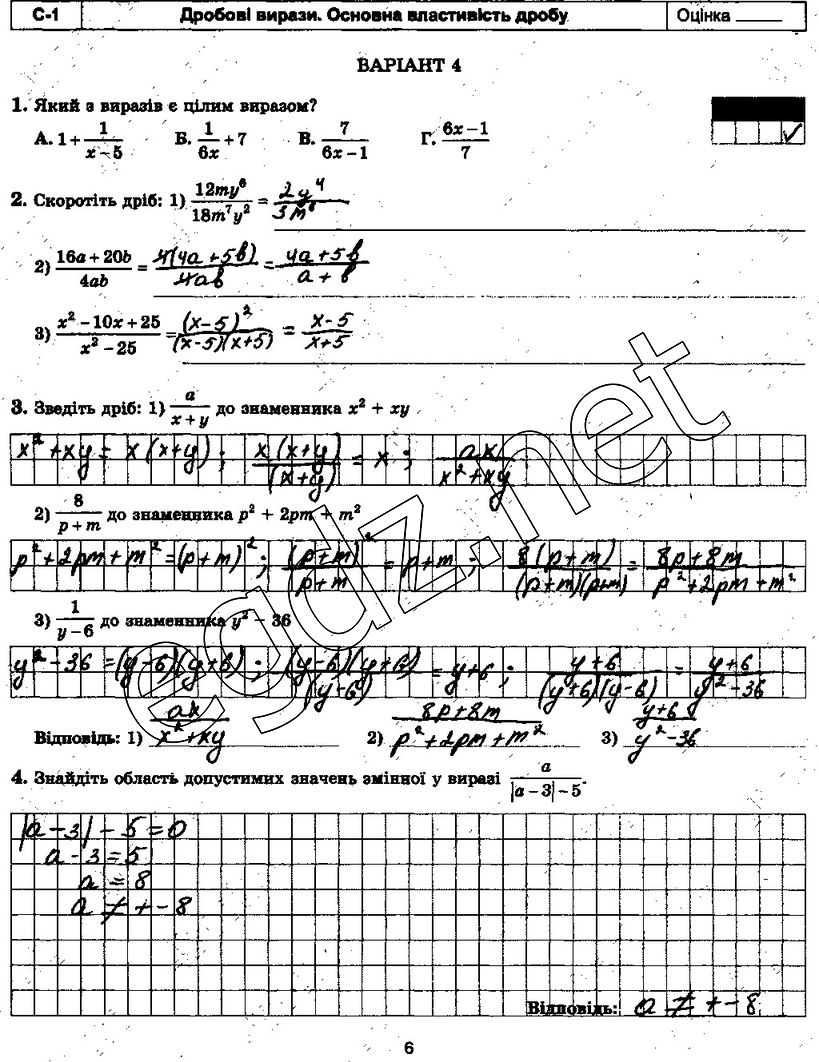 С-1 Дробові вирази. Основна властивість дробу Оцінка _____
ВАРІАНТ 4
1. Який з виразів є цілим виразом?
А. 1 + 1/(x − 5) Б. 1/(6x) + 7 В. 7/(6x − 1) Г. (6x − 1)/7 ✓
2. Скоротіть дріб: 1) 12my⁶/(18m⁷y²) = 2y⁴/(3m⁶)
2) (16a + 20b)/(4ab) = 4(4a + 5b)/(4ab) = (4a + 5b)/(a + b)
3) (x² − 10x + 25)/(x² − 25) = (x − 5)²/((x − 5)(x + 5)) = (x − 5)/(x + 5)
3. Зведіть дріб: 1) a/(x + y) до знаменника x² + xy
x² + xy = x(x + y); x(x + y)/(x + y) = x; ax/(x² + xy)
2) 8/(p + m) до знаменника p² + 2pm + m²
p² + 2pm + m² = (p + m)²; (p + m)²/(p + m) = p + m; 8(p + m)/((p + m)(p + m)) = (8p + 8m)/(p² + 2pm + m²)
3) 1/(y − 6) до знаменника y² − 36
y² − 36 = (y − 6)(y + 6); (y − 6)(y + 6)/(y − 6) = y + 6; (y + 6)/((y + 6)(y − 6)) = (y + 6)/(y² − 36)
Відповідь: 1) ax/(x² + xy) 2) (8p + 8m)/(p² + 2pm + m²) 3) (y + 6)/(y² − 36)
4. Знайдіть область допустимих значень змінної у виразі a/(|a − 3| − 5).
|a − 3| − 5 = 0
a − 3 = 5
a = 8
a ≠ + − 8
Відповідь: a ≠ + − 8
6
egdz.net